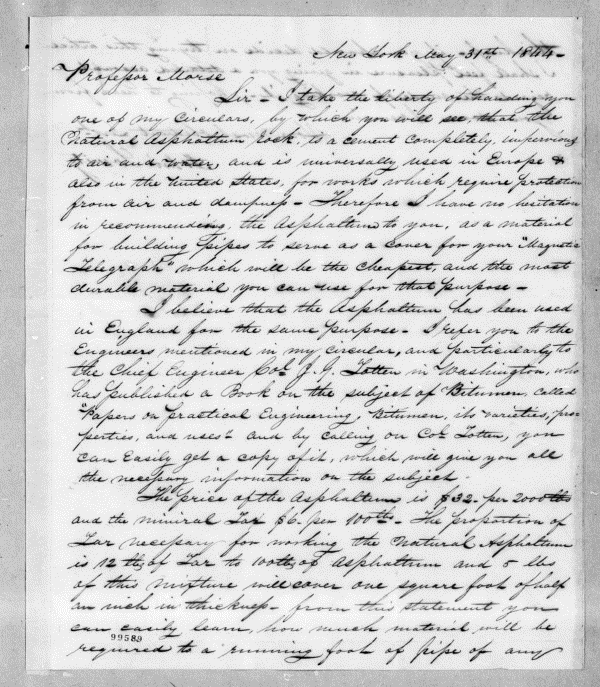 New York May 31st 1844-
Professor Morse
Sir - I take the liberty of handing you
one of my Circulars, by which you will see, that the
Natural Asphaltum rock, is a cement completely, impervious
to air and water, and is universally used in Europe &
also in the United States, for works which require protection
from air and dampness - Therefore I have no hesitation
in recommending, the Asphaltum to you, as a material
for building Pipes to serve as a cover for your "Magnetic
Telegraph" which will be the cheapest, and the most
durable material you can use for that purpose -
I believe that the Asphaltum has been used
in England for the same purpose - I refer you to the
Engineers mentioned in my circular, and particularly to
the Chief Engineer Col. J. G. Totten in Washington, who
has published a Book on the subject of Bitumen, called
"Papers on practical Engineering, Bitumen, its varieties, pro-
perties, and uses" and by calling on Col. Totten, you
can easily get a copy of it, which will give you all
the necessary information on the subject.
The price of the Asphaltum is $32. per 2000 lbs
and the mineral Tar $6. per 100 lb - The proportion of
Tar necessary for working the Natural Asphaltum
is 12 lb of Tar to 100 lb of Asphaltum and 5 lbs
of this mixture will cover one square foot of half
an inch in thickness - from this statement you
can easily learn, how much material will be
99589
required to a running foot of pipe of any